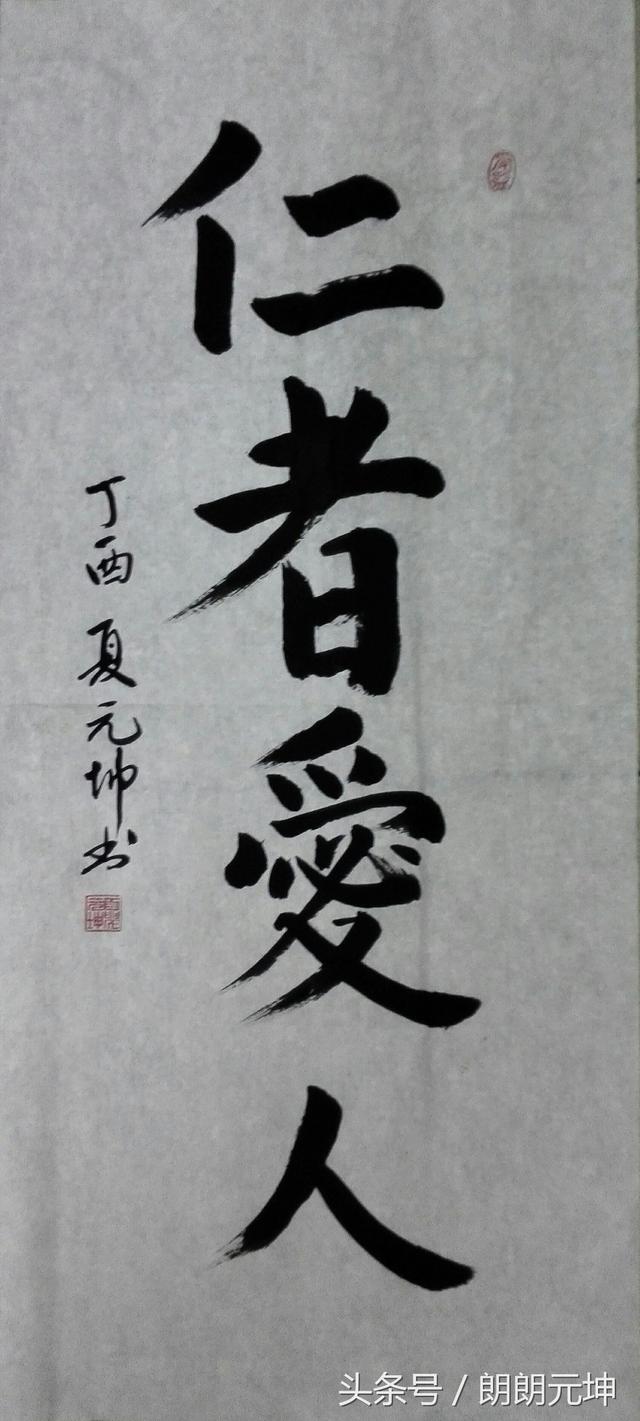 仁者愛人
丁酉 夏元坤书
头条号 / 朗朗元坤